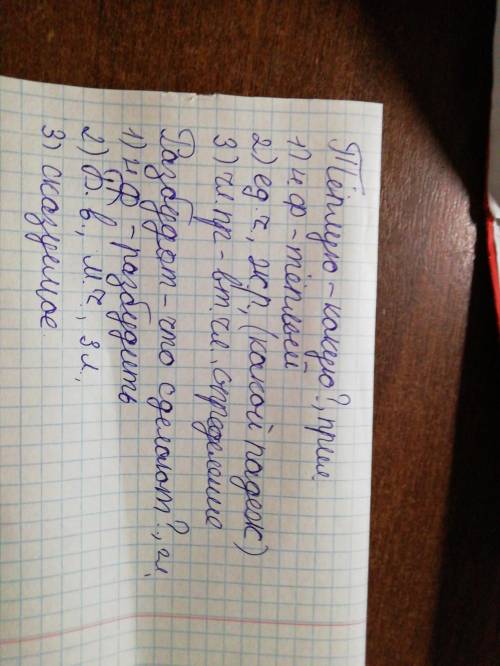 Тёплую - какую?, прил.
1) н.ф - тёплый
2) ед.ч, ж.р, (какой падеж)
3) чл.пр - вт.чл, определение
Разбудят - что сделают?, гл,
1) н.ф - разбудить
2) б.в., м.ч, 3л.,
3) сказуемое.